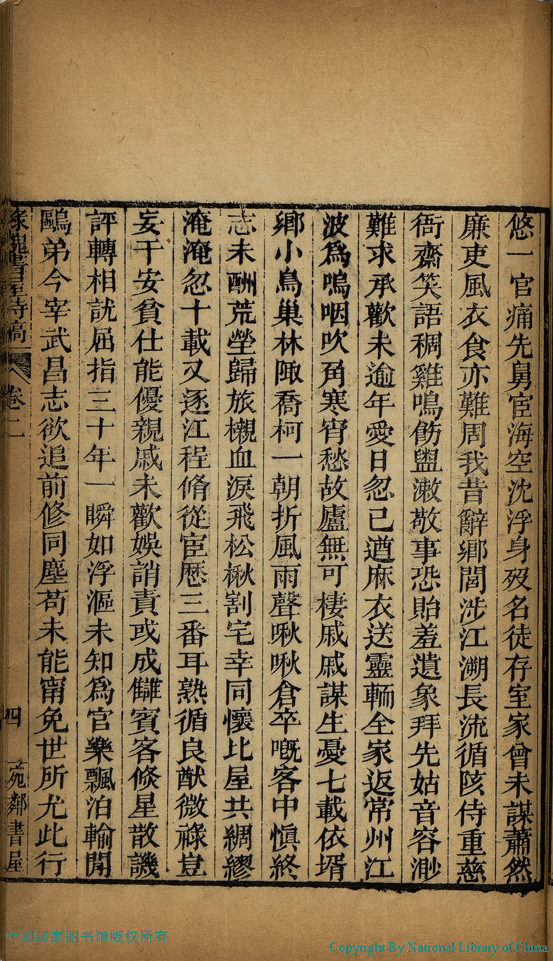 悠一官痛先舅宦海空沈浮身歿名徒存室家曾未謀蕭然
廉吏風衣食亦難周我昔辭鄉閭涉江溯長流循陔侍重慈
衙齋笑語稠雞鳴飭盥漱敬事恐貽羞遺象拜先姑音容渺
難求承歡未逾年愛日忽已遒麻衣送靈輀全家返常州江
波爲嗚咽吹角寒宵愁故廬無可棲戚戚謀生憂七載依壻
鄉小鳥巢林陬喬柯一朝折風雨聲啾啾倉卒嘅客中愼終
志未酬荒塋歸旅櫬血淚飛松楸割宅幸同懷比屋共綢繆
淹淹忽十載又逐江程脩從宦歷三番耳熟循良猷微祿豈
妄干安貧仕能優親戚未歡娛誚責或成讎賓客倏星散譏
評轉相訧屈指三十年一瞬如浮漚未知爲官樂飄泊輸閒
鷗弟今宰武昌志欲追前修同塵苟未能甯免世所尤此行
槐書屋詩稿
卷二
四
苑鄰書屋
中国国家图书馆版权所有
Copyright By National Library of China